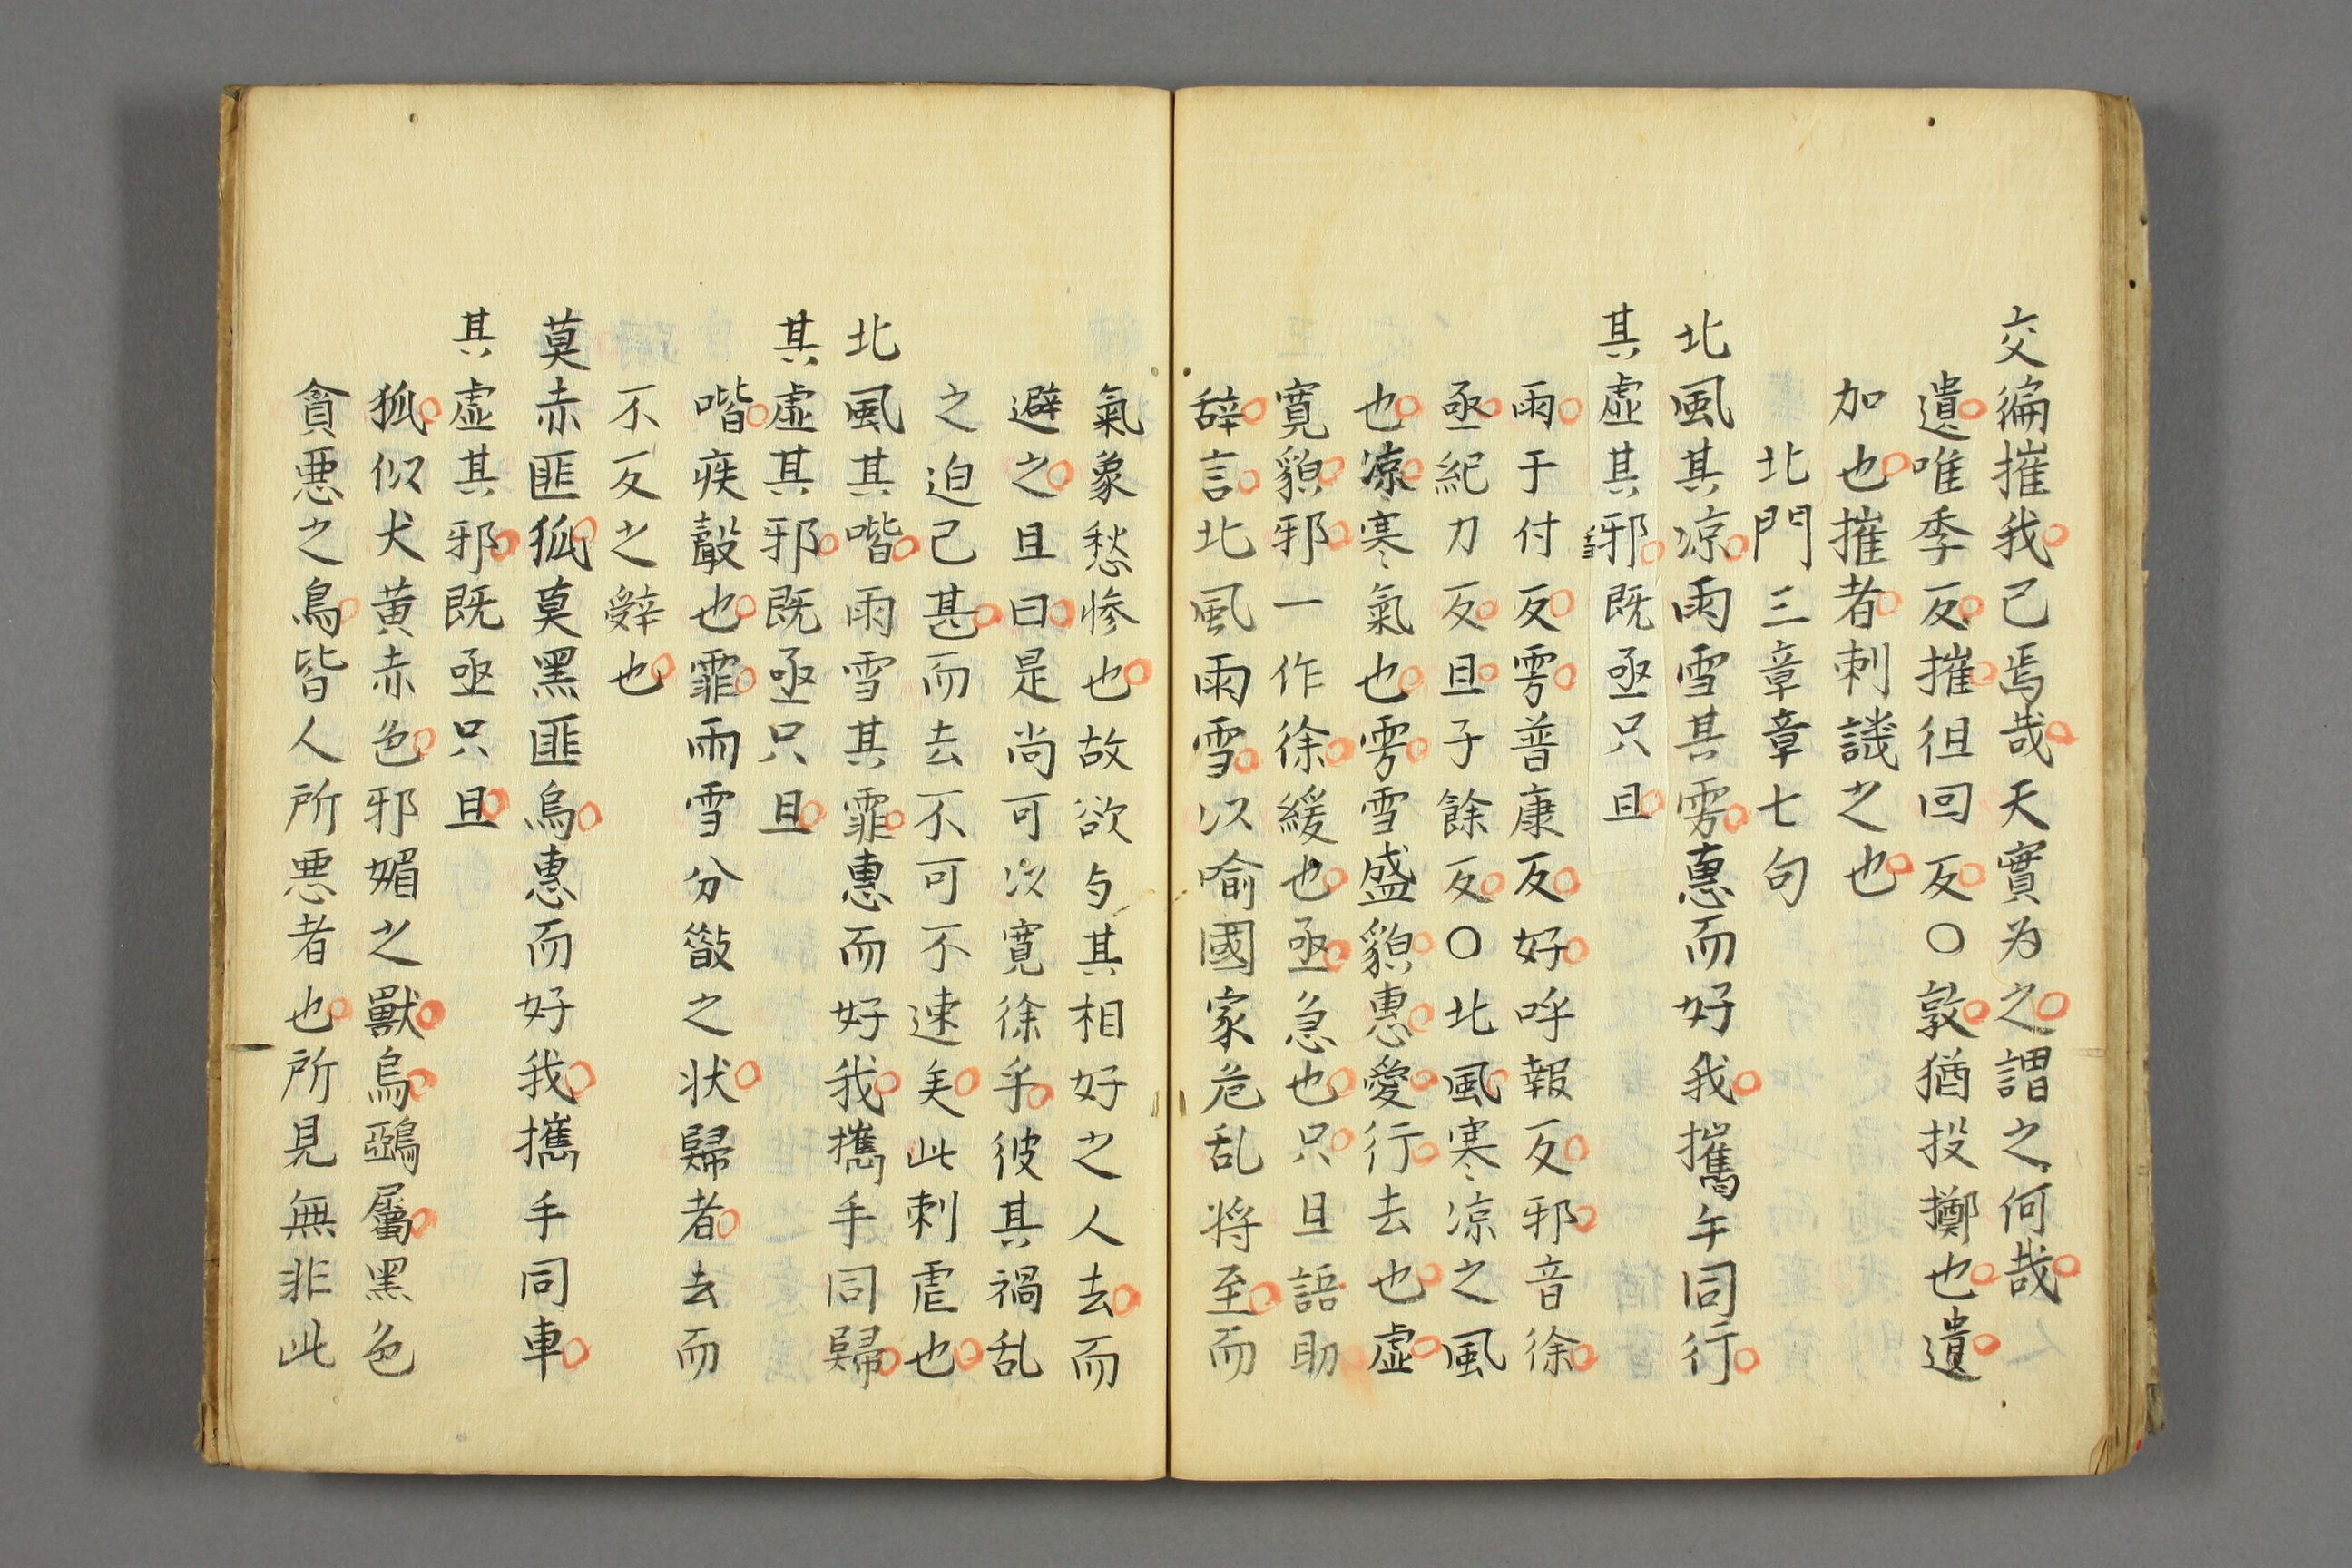 交徧摧我已焉哉天實为之謂之何哉
遺唯季反摧徂回反〇敦猶投擲也遺
加也摧者刺譏之也
北門三章章七句
北風其凉雨雪其雱惠而好我攜手同行
其虛其邪既亟只且
雨于付反雱普康反好呼報反邪音徐
亟紀力反且子餘反〇北風寒凉之風
也凉寒氣也雱雪盛貌惠愛行去也虛
寛貌邪一作徐緩也亟急也只且語助
辞言北風雨雪以喻國家危乱将至而
氣象愁惨也故欲与其相好之人去而
避之且曰是尚可以寛徐乎彼其禍乱
之迫己甚而去不可不速矣此刺虐也
北風其喈雨雪其霏惠而好我攜手同歸
其虛其邪既亟只且
喈疾聲也霏雨雪分散之状歸者去而
不反之辭也
莫赤匪狐莫黑匪烏惠而好我攜手同車
其虛其邪既亟只且
狐似犬黄赤色邪媚之獸烏鵶屬黑色
貪悪之鳥皆人所悪者也所見無非此